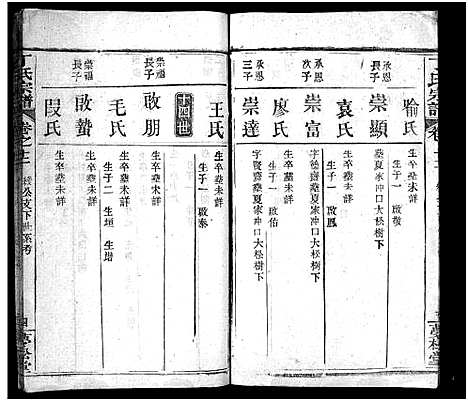 丁氏宗譜
喻氏 生卒塟未詳
生子一 啟敬
承恩長子 崇顯 塟夏家冲口大松樹下
袁氏 生卒塟未詳
生子一 啟鳳
承恩次子 崇富 塟夏家冲口大松樹下
廖氏 生卒塟未詳
生子一 啟佑
承恩三子 崇達 塟夏家冲口大松樹下
王氏 生卒塟未詳
生子一 啟泰
十四世
崇福長子 啟朋 生卒塟未詳
毛氏 生卒塟未詳
生子二 生垣 生
崇福 啟蟄 生卒塟未詳
段氏 生卒塟未詳
丁氏宗譜
卷之十二
公支下世系考